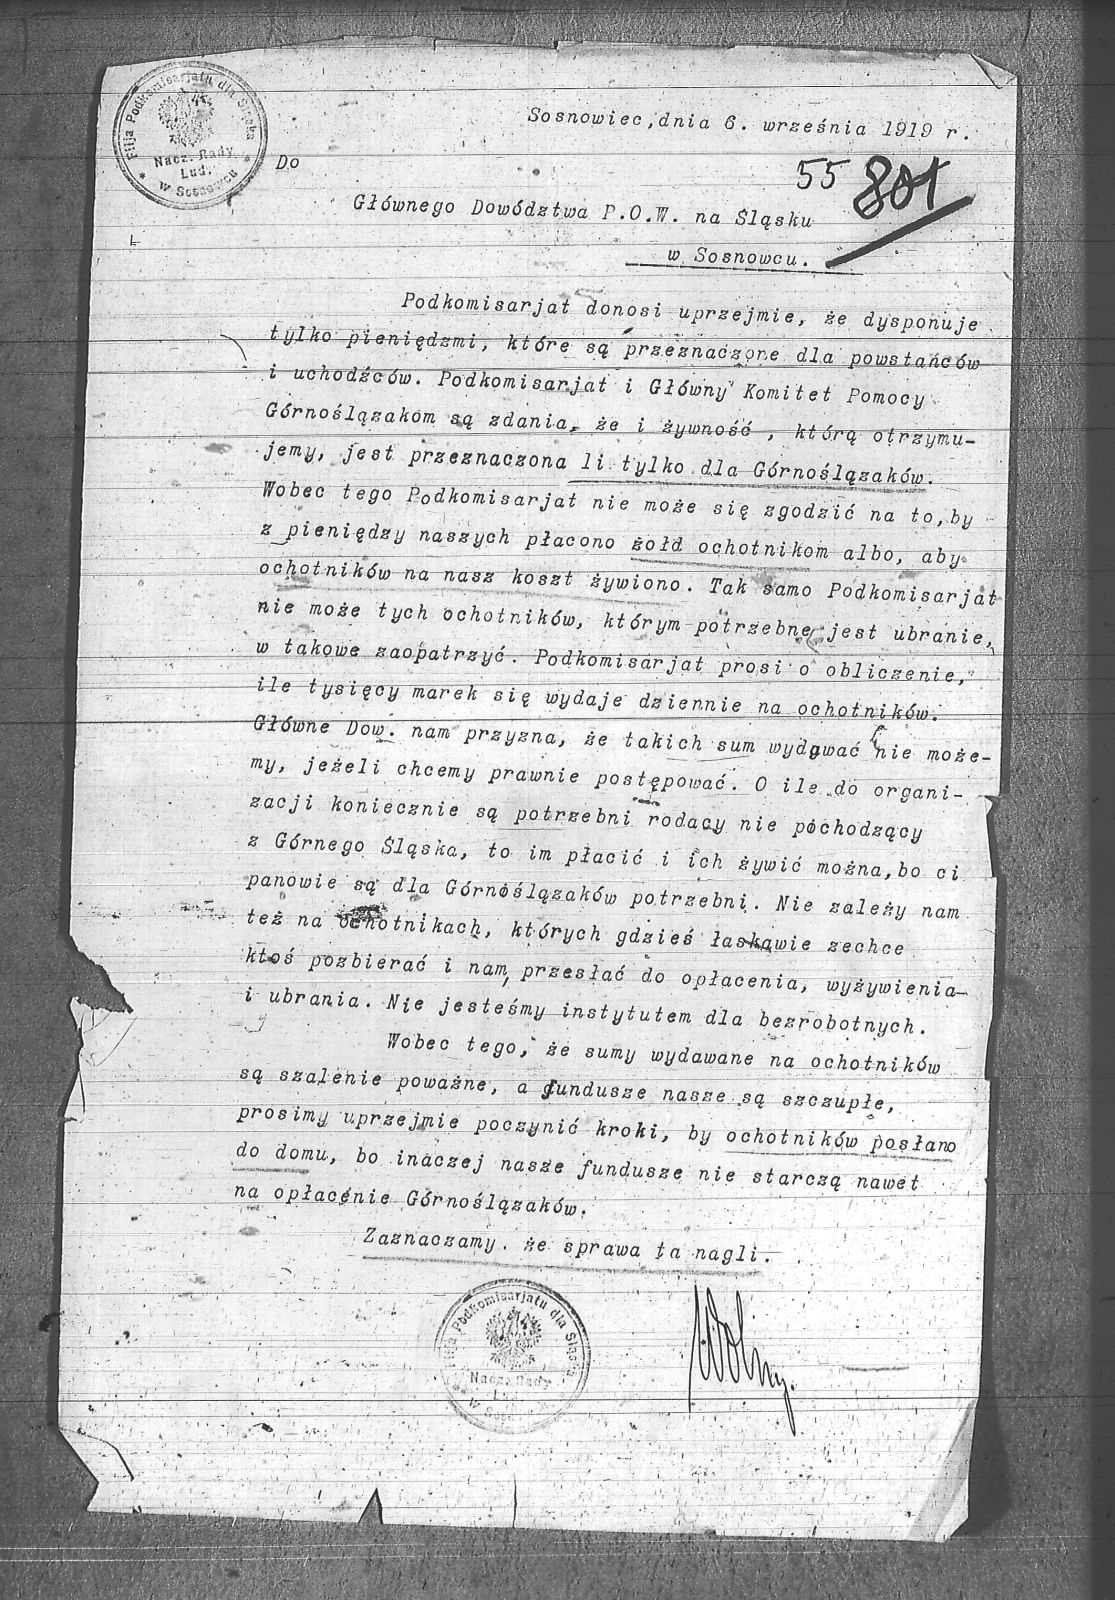 Filja Podkomisarjatu dla Śląska
Nacz. Rady
Lud.
* w Sosnowcu *
Sosnowiec, dnia 6. września 1919 r.
Do
55 801
Głównego Dowództwa P.O.W. na Śląsku
w Sosnowcu.
Podkomisarjat donosi uprzejmie, że dysponuje
tylko pieniędzmi, które są przeznaczone dla powstańców
i uchodźców. Podkomisarjat i Główny Komitet Pomocy
Górnoślązakom są zdania, że i żywność , którą otrzymu-
jemy, jest przeznaczona li tylko dla Górnoślązaków.
Wobec tego Podkomisarjat nie może się zgodzić na to, by
z pieniędzy naszych płacono żołd ochotnikom albo, aby
ochotników na nasz koszt żywiono. Tak samo Podkomisarjat
nie może tych ochotników, którym potrzebne jest ubranie,
w takowe zaopatrzyć. Podkomisarjat prosi o obliczenie,
ile tysięcy marek się wydaje dziennie na ochotników.
Główne Dow. nam przyzna, że takich sum wydawać nie może-
my, jeżeli chcemy prawnie postępować. O ile do organi-
zacji koniecznie są potrzebni rodacy nie pochodzący
z Górnego Śląska, to im płacić i ich żywić można, bo ci
panowie są dla Górnoślązaków potrzebni. Nie zależy nam
też na ochotnikach, których gdzieś łaskawie zechce
ktoś pozbierać i nam, przesłać do opłacenia, wyżywienia
i ubrania. Nie jesteśmy instytutem dla bezrobotnych.
Wobec tego, że sumy wydawane na ochotników
są szalenie poważne, a fundusze nasze są szczupłe,
prosimy uprzejmie poczynić kroki, by ochotników posłano
do domu, bo inaczej nasze fundusze nie starczą nawet
na opłacenie Górnoślązaków.
Zaznaczamy. że sprawa ta nagli.
Filja Podkomisarjatu dla Śląska
Nacz. Rady
Wolny.